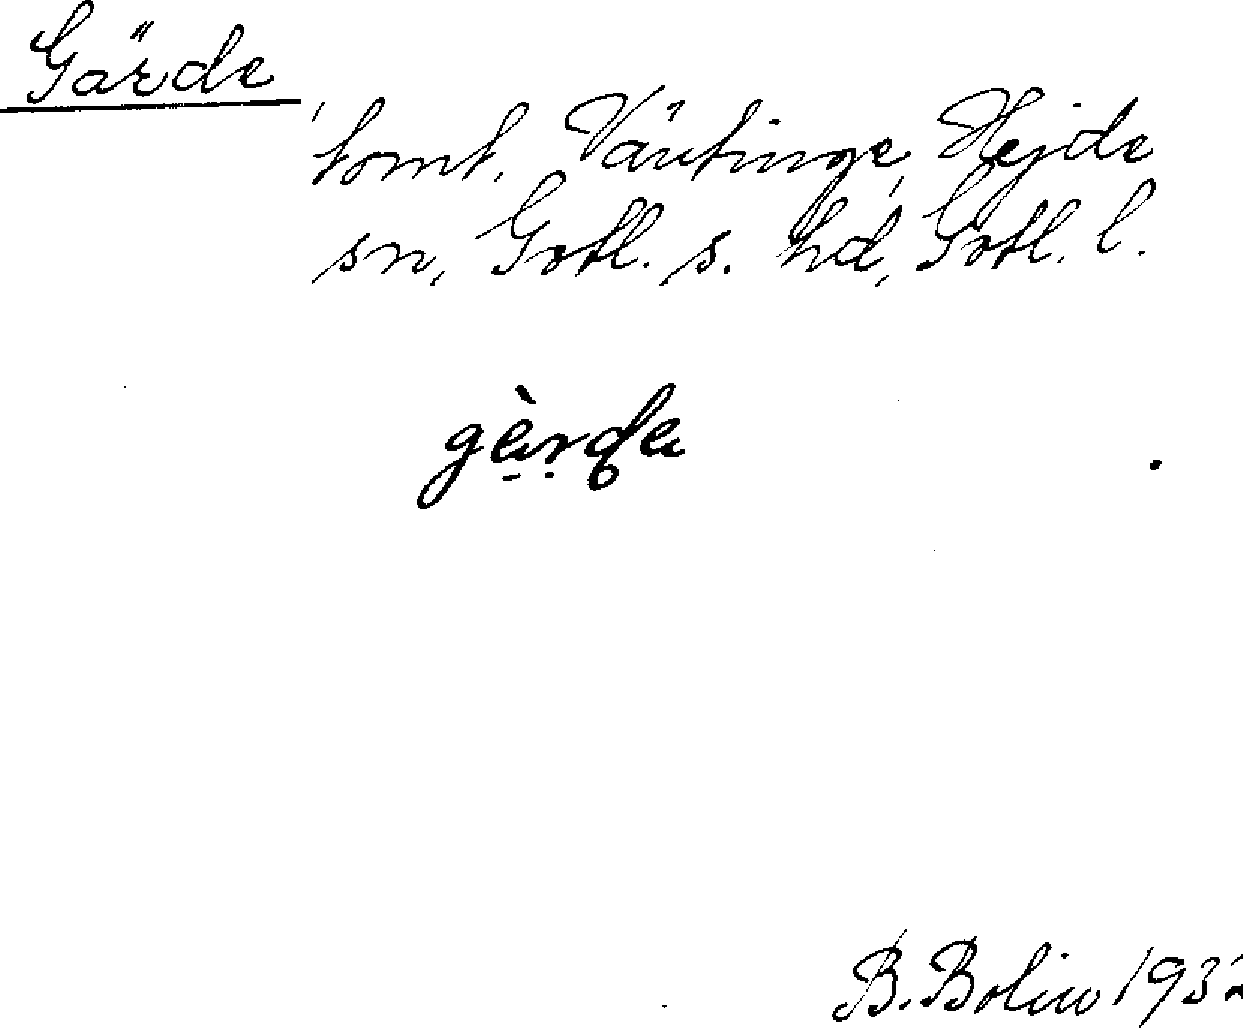 Gärde
tomt, Väntinge, Hejde
sn, Gotl. s. hd, Gotl. l.
B. Bolin 1932